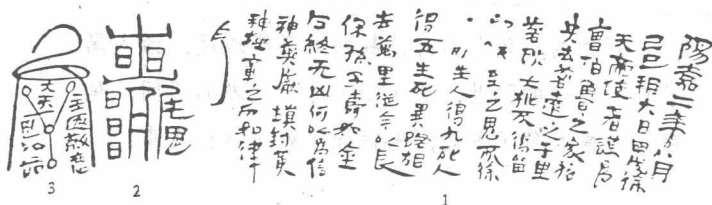 陽嘉二年八月
己巳朔六日甲戌徐
天帝使者謹爲
曹伯魯之家移
央去咎遠之千里
咎殃大桃不得留
至之鬼所徐
生人得九死人
得五生死異路相
去萬里從今以長
保孫子壽如金
石終无凶何以爲信
神藥厭填封黃
神越章之印如律
令
1
日
日
日
日
鬼
2
大天
主逐敵惡
3